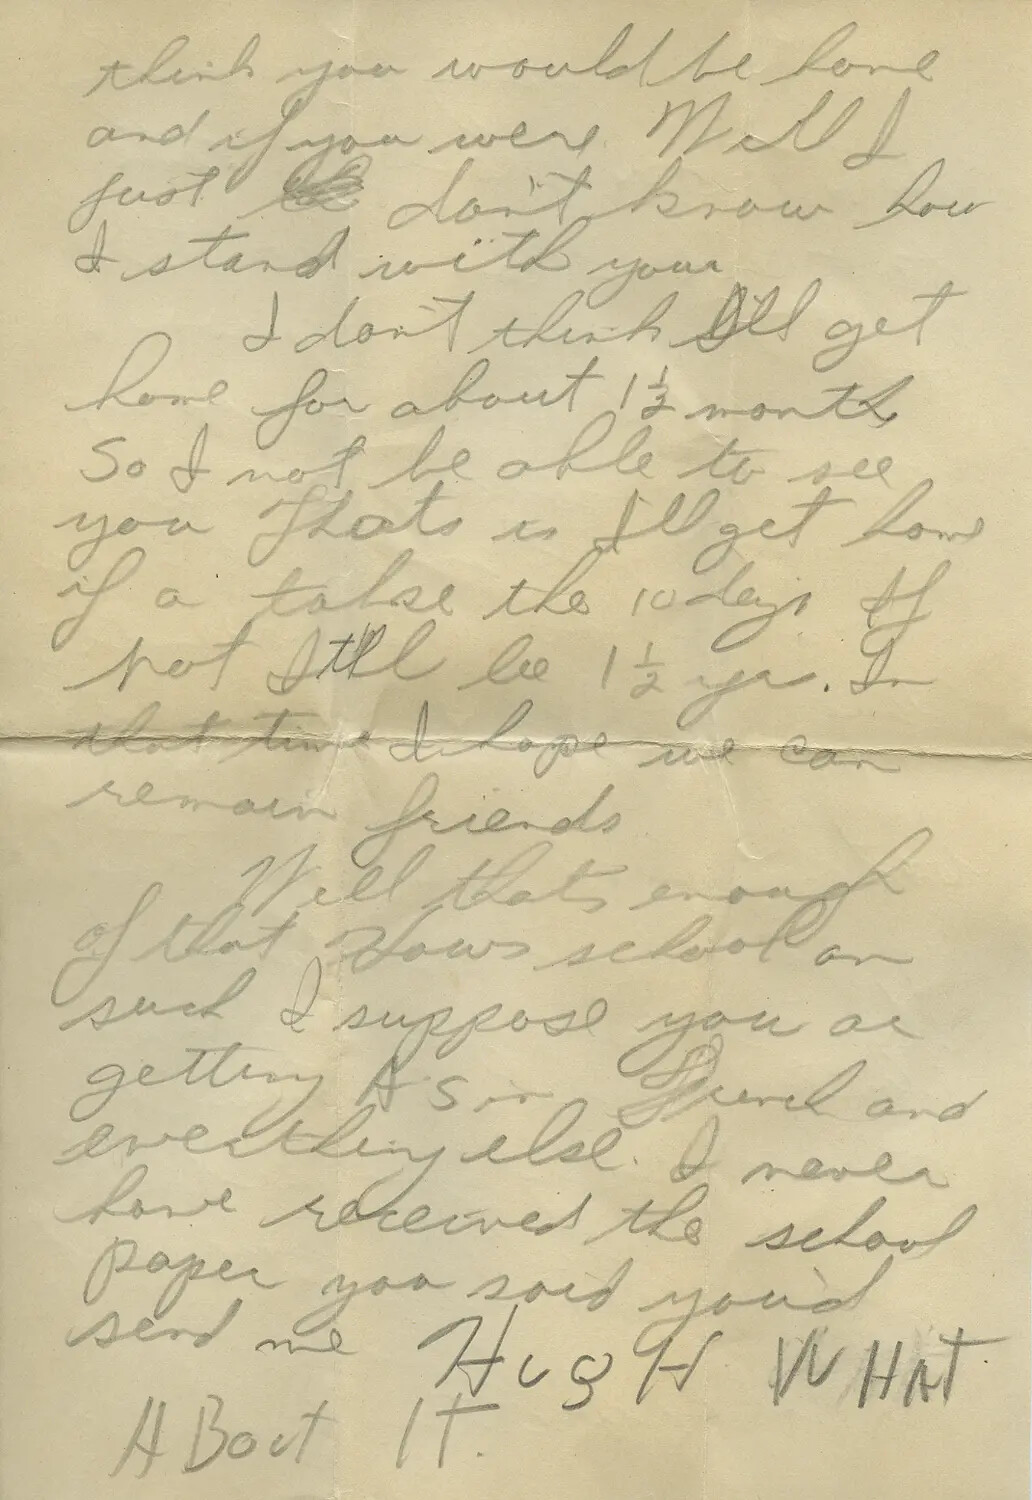 think you would be home
and if you were. Well I
just don't know how
I stand with you
I don't think I'll get
home for about 1 1/2 month
So I not be able to see
you Thats is I'll get home
if a takse the 10 days If
not I'll be 1 1/2 yr. In
that time I hope we can
remain friends
Well thats enough
of that Hows school an
such I suppose you ar
getting A s in and
everthing else. I never
have received the school
paper you said you'd
send me HugH WHAT
ABout IT.